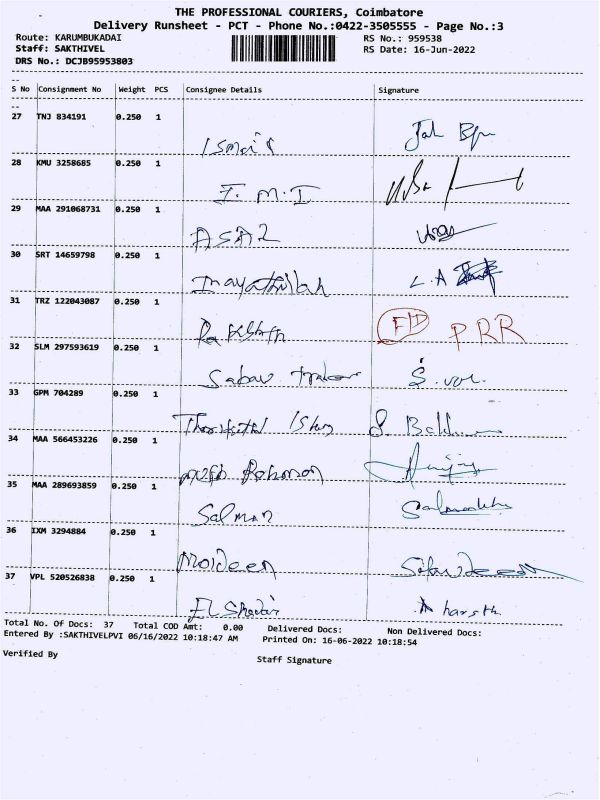 THE PROFESSIONAL COURIERS, Coimbatore
Delivery Runsheet - PCT - Phone No.:0422-3505555 - Page No.:3
Route: KARUMBUKADAI RS No.: 959538
Staff: SAKTHIVEL RS Date: 16-Jun-2022
DRS No.: DCJB95953803
S No Consignment No Weight PCS Consignee Details Signature
27 TNJ 834191 0.250 1
Ismail
28 KMU 3258685 0.250 1
I.M.I
29 MAA 291068731 0.250 1
30 SRT 14659798 0.250 1
Inayathilah L.A
31 TRZ 122043087 0.250 1
F/D PRR
32 SLM 297593619 0.250 1
33 GPM 704289 0.250 1
34 MAA 566453226 0.250 1
35 MAA 289693859 0.250 1
Salman
36 IXM 3294884 0.250 1
Moideen
37 VPL 520526838 0.250 1
Total No. Of Docs: 37 Total COD Amt: 0.00 Delivered Docs: Non Delivered Docs:
Entered By :SAKTHIVELPVI 06/16/2022 10:18:47 AM Printed On: 16-06-2022 10:18:54
Verified By Staff Signature